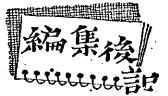 編集後記